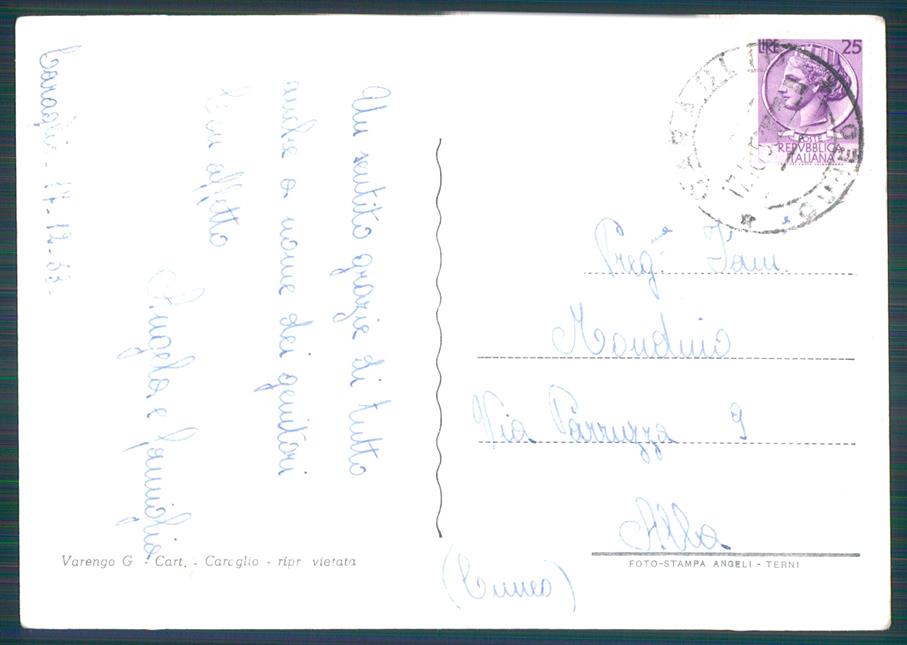 Caraglio - 17-12-55.
Un sentito grazie di tutto
anche a nome dei genitori
Con affetto
Angela e famiglia
LIRE 25
POSTE
REPVBBLICA
ITALIANA
CUNEO
Preg.ma Fam.
Mondino
Via Parruzza 9
Alba
(Cuneo)
Varengo G - Cart. - Caraglio - ripr vietata
FOTO-STAMPA ANGELI - TERNI